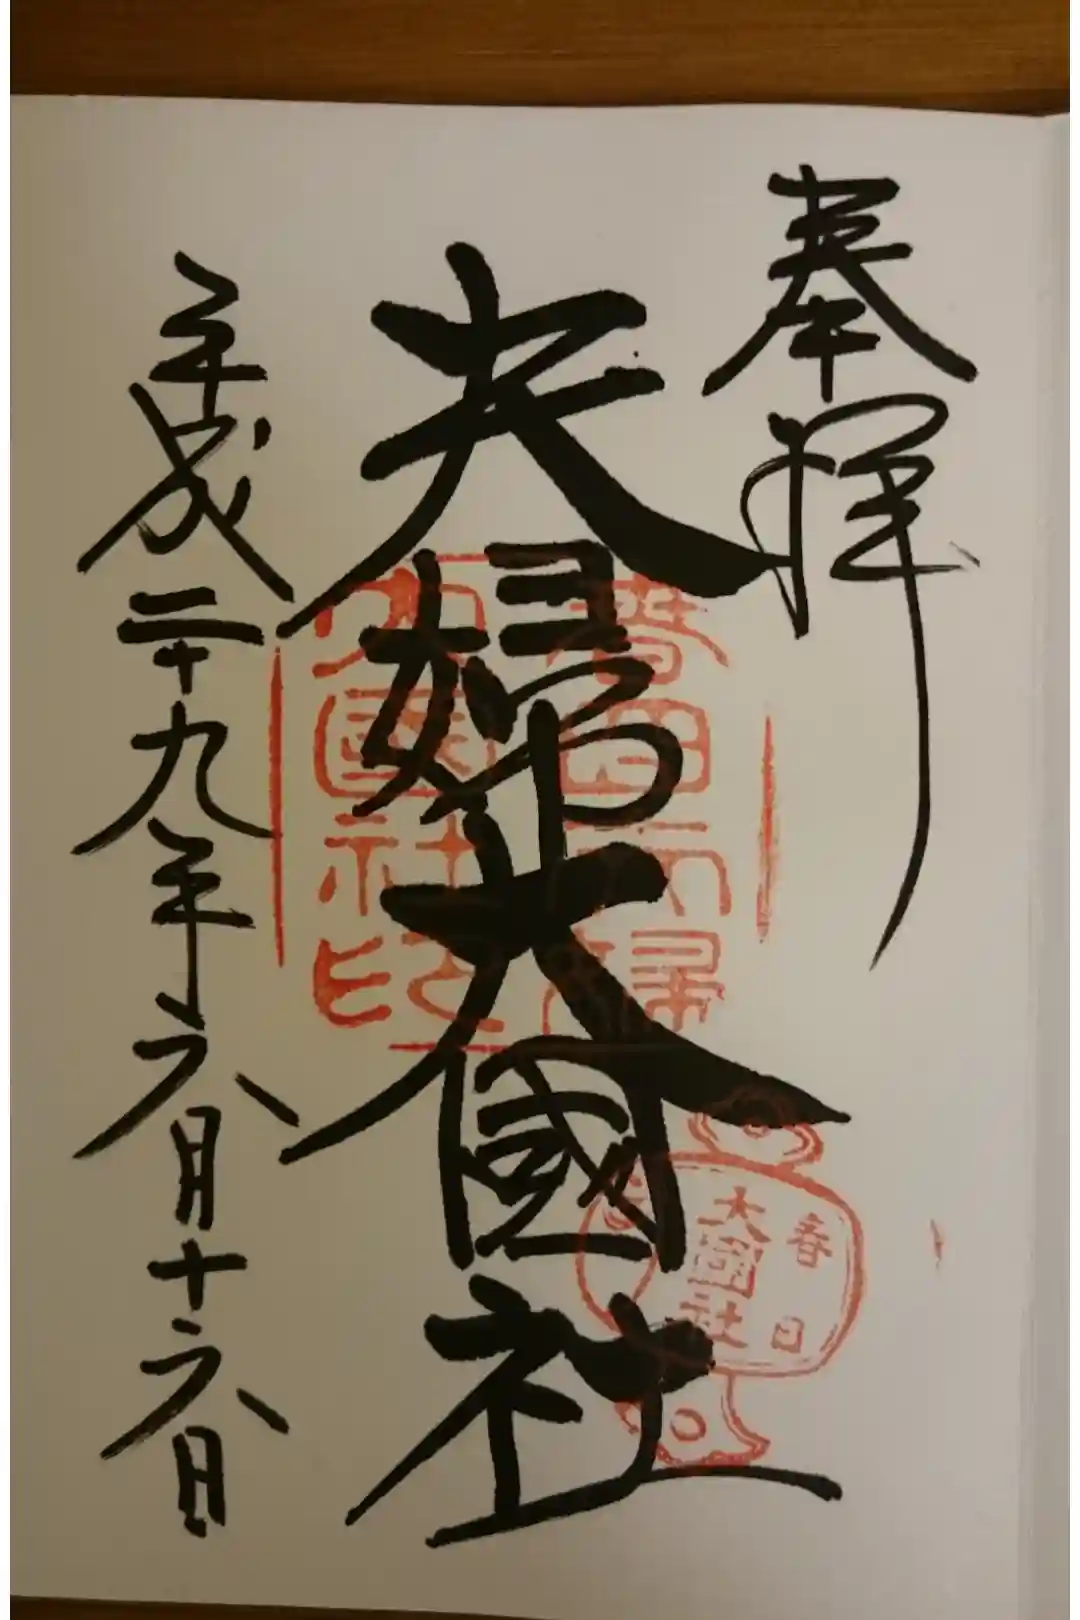 奉拝
夫婦大國社
平成二十九年六月十六日
春日
夫婦
大國社印
春日
大國社